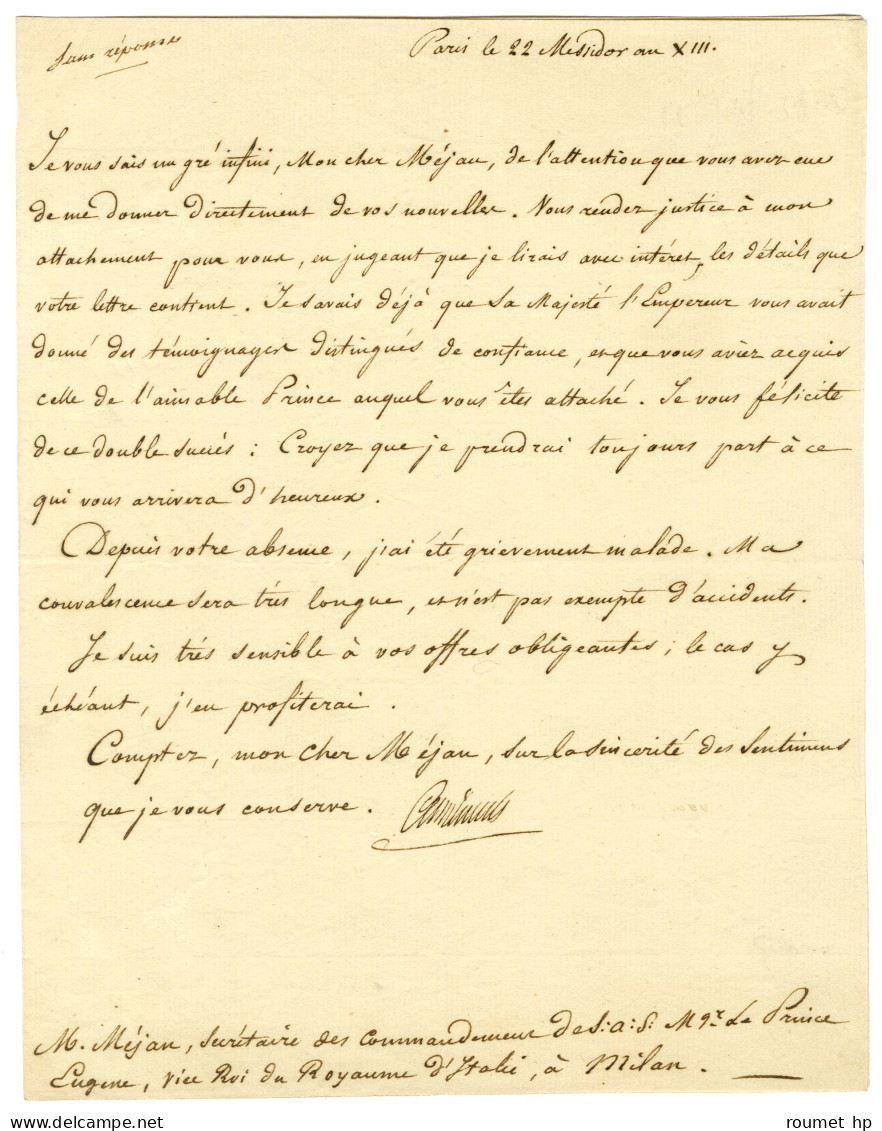 Sans réponse
Paris le 22 Messidor an XIII.
Je vous sais un gré infini, Mon cher Méjan, de l'attention que vous avez eue
de me donner directement de vos nouvelles. Vous rendez justice à mon
attachement pour vous, en jugeant que je lirais avec intéret, les détails que
votre lettre contient. Je savais déjà que Sa Majesté l'Empereur vous avait
donné des témoignages distingués de confiance, et que vous aviez acquis
celle de l'aimable Prince auquel vous êtes attaché. Je vous félicite
de ce double succès : Croyez que je prendrai toujours part à ce
qui vous arrivera d'heureux.
Depuis votre absence, j'ai été grievement malade. Ma
convalescence sera trés longue, et n'est pas exempte d'accidents.
Je suis trés sensible à vos offres obligeantes ; le cas y
échéant, j'en profiterai.
Comptez, mon cher Méjan, sur la sincerité des sentimens
que je vous conserve.
M. Méjan, Secrétaire des Commandemens de S. A. S. Mgr. Le Prince
Eugene, vice Roi du Royaume d'Italie, à Milan.
www.delcampe.net
roumet hp